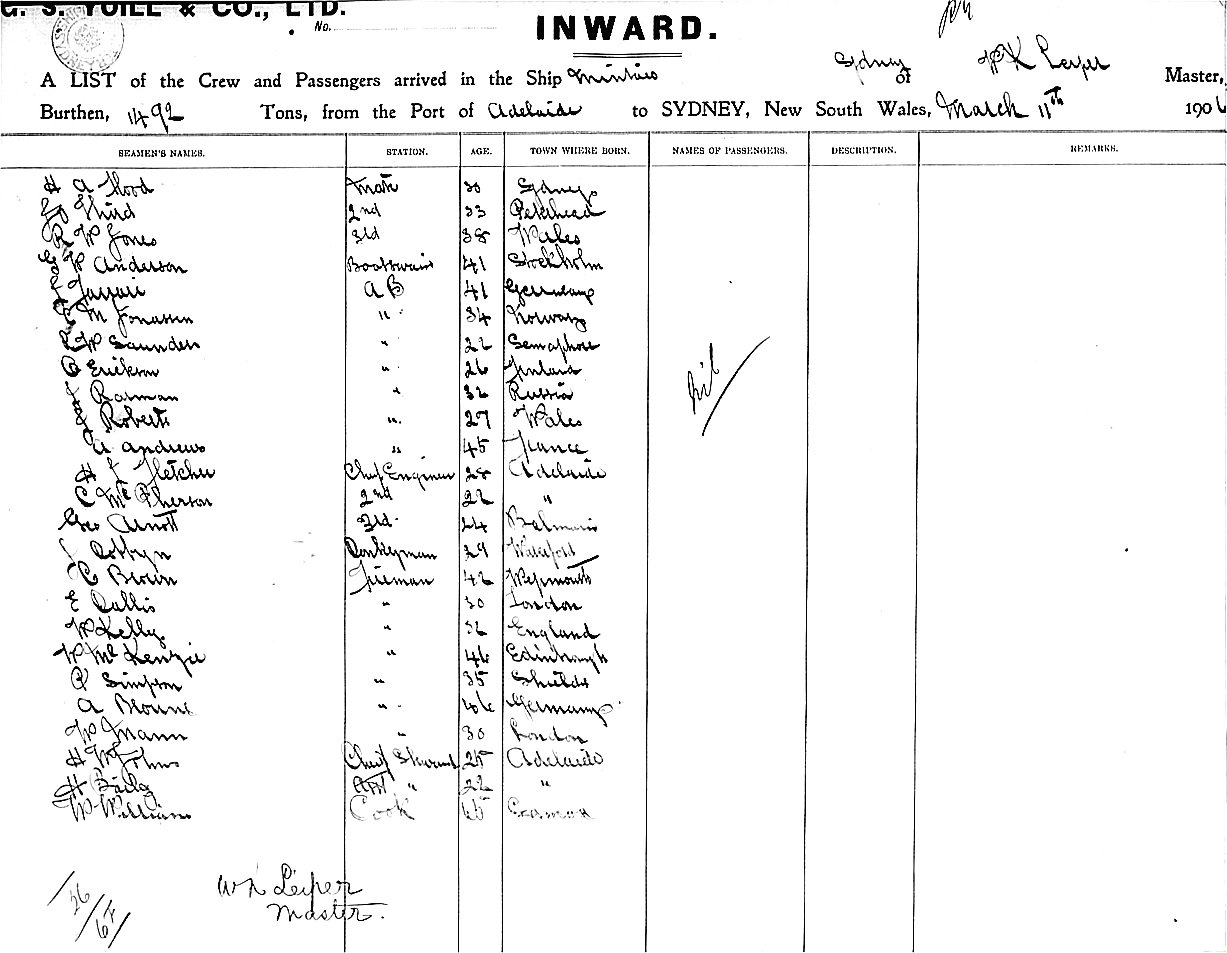 G. S. YUILL & CO., LTD.
No.
INWARD.
A LIST of the Crew and Passengers arrived in the Ship of Sydney W K Leiper Master,
Burthen, 1492 Tons, from the Port of Adelaide to SYDNEY, New South Wales, March 11th 190
SEAMEN'S NAMES. STATION. AGE. TOWN WHERE BORN. NAMES OF PASSENGERS. DESCRIPTION. REMARKS.
H A Hood Mate 30 Sydney
Third 2nd 33 Peterhead
R W Jones 3rd 38 Wales
Anderson Boatswain 41 Stockholm
A B 41 Germany
M Jonassen " 34 Norway
R W Saunders " 22 Semaphore
Erikson " 26 Finland
Ratman " 32 Russia
Roberts " 27 Wales
A Andrews " 45 France
H J Fletcher Chief Engineer 28 Adelaide
C McPherson 2nd 22 "
Geo Arnott 3rd 24 Balmain
Donkeyman 29 Waterford
C Brown Fireman 42 Weymouth
E " 30 London
W Kelly " 32 England
W McKenzie " 46 Edinburgh
P Simpson " 35 Shields
A Broune " Germany
W Mann " 30 London
H W Johns Chief Steward 25 Adelaide
H " 22 "
W Williams Cook
Nil
W K Leiper
Master.